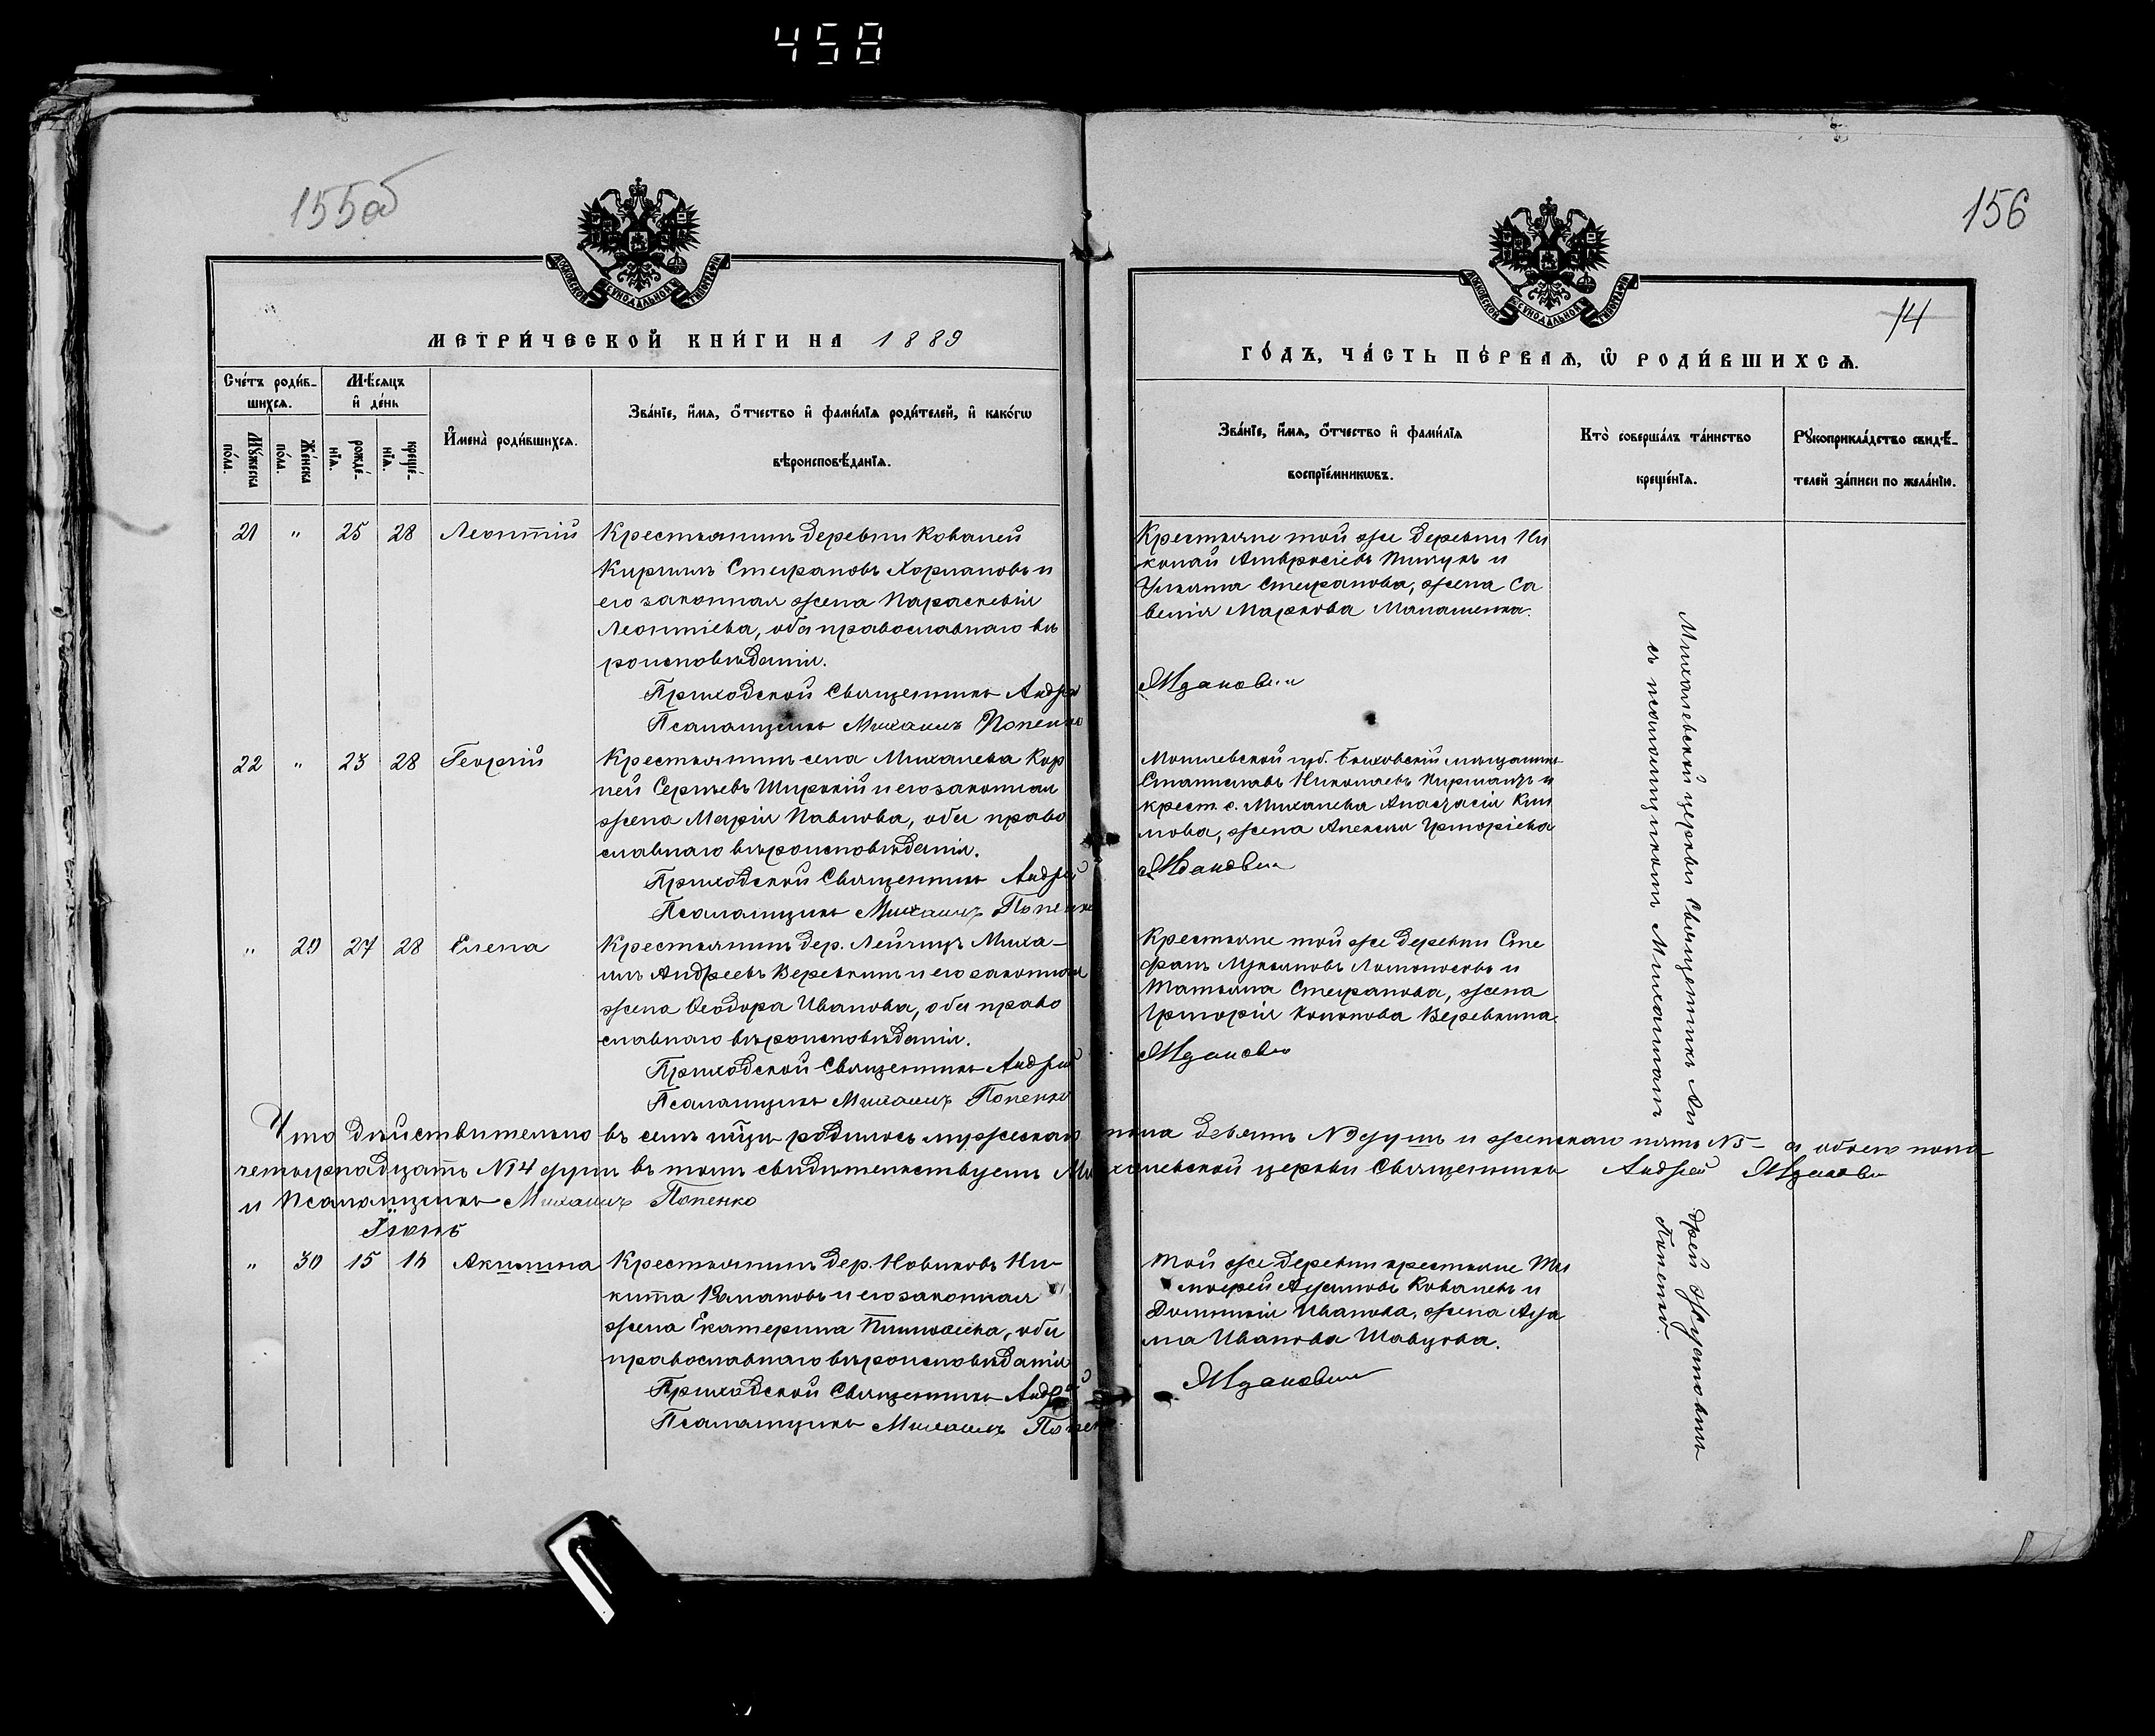 458
155об
156
14
МОСКОВСКОЙ СѴНОДАЛЬНОЙ ТИПОГРАФІИ
МОСКОВСКОЙ СѴНОДАЛЬНОЙ ТИПОГРАФІИ
МЕТРИ́ЧЕСКОЙ КНИ́ГИ НА 1889
ГО́ДЪ, ЧА́СТЬ ПЕ́РВАѦ, Ѿ РОДИ́ВШИХСѦ.
Сче́тъ роди́в-
шихсѧ.
Мѣ́сѧцъ
и҆ де́нь
Мꙋ́жеска
по́ла.
Же́нска
по́ла.
рожде́-
нїѧ.
креще́-
нїѧ.
И҆мена̀ роди́вшихсѧ.
Зва́нїе, и҆́мѧ, ѻ҆́тчество и҆ фами́лїѧ роди́телей, и҆ како́гѡ
вѣроисповѣ́данїѧ.
Зва́нїе, и҆́мѧ, ѻ҆́тчество и҆ фами́лїѧ
воспрїе́мникѡвъ.
Кто̀ соверша́лъ та́инство
креще́нїѧ.
Рꙋкоприкла́дство свидѣ́-
телей за́писи по жела́нїю.
21 " 25 28 Леонтій
Крестьянинъ деревни Ковалей
Кирилъ Стефановъ Харлановъ и
его законная жена Параскевія
Леонтіева, оба православнаго вѣ
роисповѣданія.
Приходской Священникъ Андрей
Псаломщикъ Михаилъ Попенко
Крестьяне той же деревни Ни
колай Амвросіевъ и
Ульяна Стефанова, жена Са
велія Маркова Малашенка.
Ждановичъ
22 " 23 28 Георгій
Крестьянинъ села Михалева Кор
ней Сергѣевъ Ширкій и его законная
жена Марія Павлова, оба право
славнаго вѣроисповѣданія.
Приходской Священникъ Андрей
Псаломщикъ Михаилъ Попенко
Могилевской губ. Быховскій мѣщанинъ
Станиславъ Николаевъ и
крест. с. Михалева Анастасія Кли
мова, жена Алексѣя Григоріева
Ждановичъ
" 29 27 28 Елена
Крестьянинъ дер. Лейчицъ Миха-
илъ Андреевъ Веревкинъ и его законная
жена Ѳеодора Иванова, оба право
славнаго вѣроисповѣданія.
Приходской Священникъ Андрей
Псаломщикъ Михаилъ Попенко
Крестьяне той же деревни Сте
фанъ Лукьяновъ Ломоносовъ и
Татьяна Стефанова, жена
Григорія Кононова Веревкина.
Ждановичъ
Что дѣйствительно въ семъ мцѣ родилось мужескаго пола девять №9 душъ и женскаго пять №5 - а обоего пола
четырнадцать №14 душъ въ томъ свидѣтельствуемъ Михалевской церкви Священникъ Андрей Ждановичъ
и Псаломщикъ Михаилъ Попенко
Іюнь
" 30 15 16 Акилина
Крестьянинъ дер. Новиковъ Ни-
кита и его законная
жена Екатерина Тимоѳеева, оба
православнаго вѣроисповѣданія
Приходской Священникъ Андрей
Псаломщикъ Михаилъ Попен
Той же деревни крестьяне Ти
моѳей Ковалевъ и
Домникія Иванова, жена Ада
ма Иванова Шавцова.
Ждановичъ
Михалевской церкви Священникъ Ан
дрей Ждановичъ
съ псаломщикомъ Михаиломъ
Попенко.